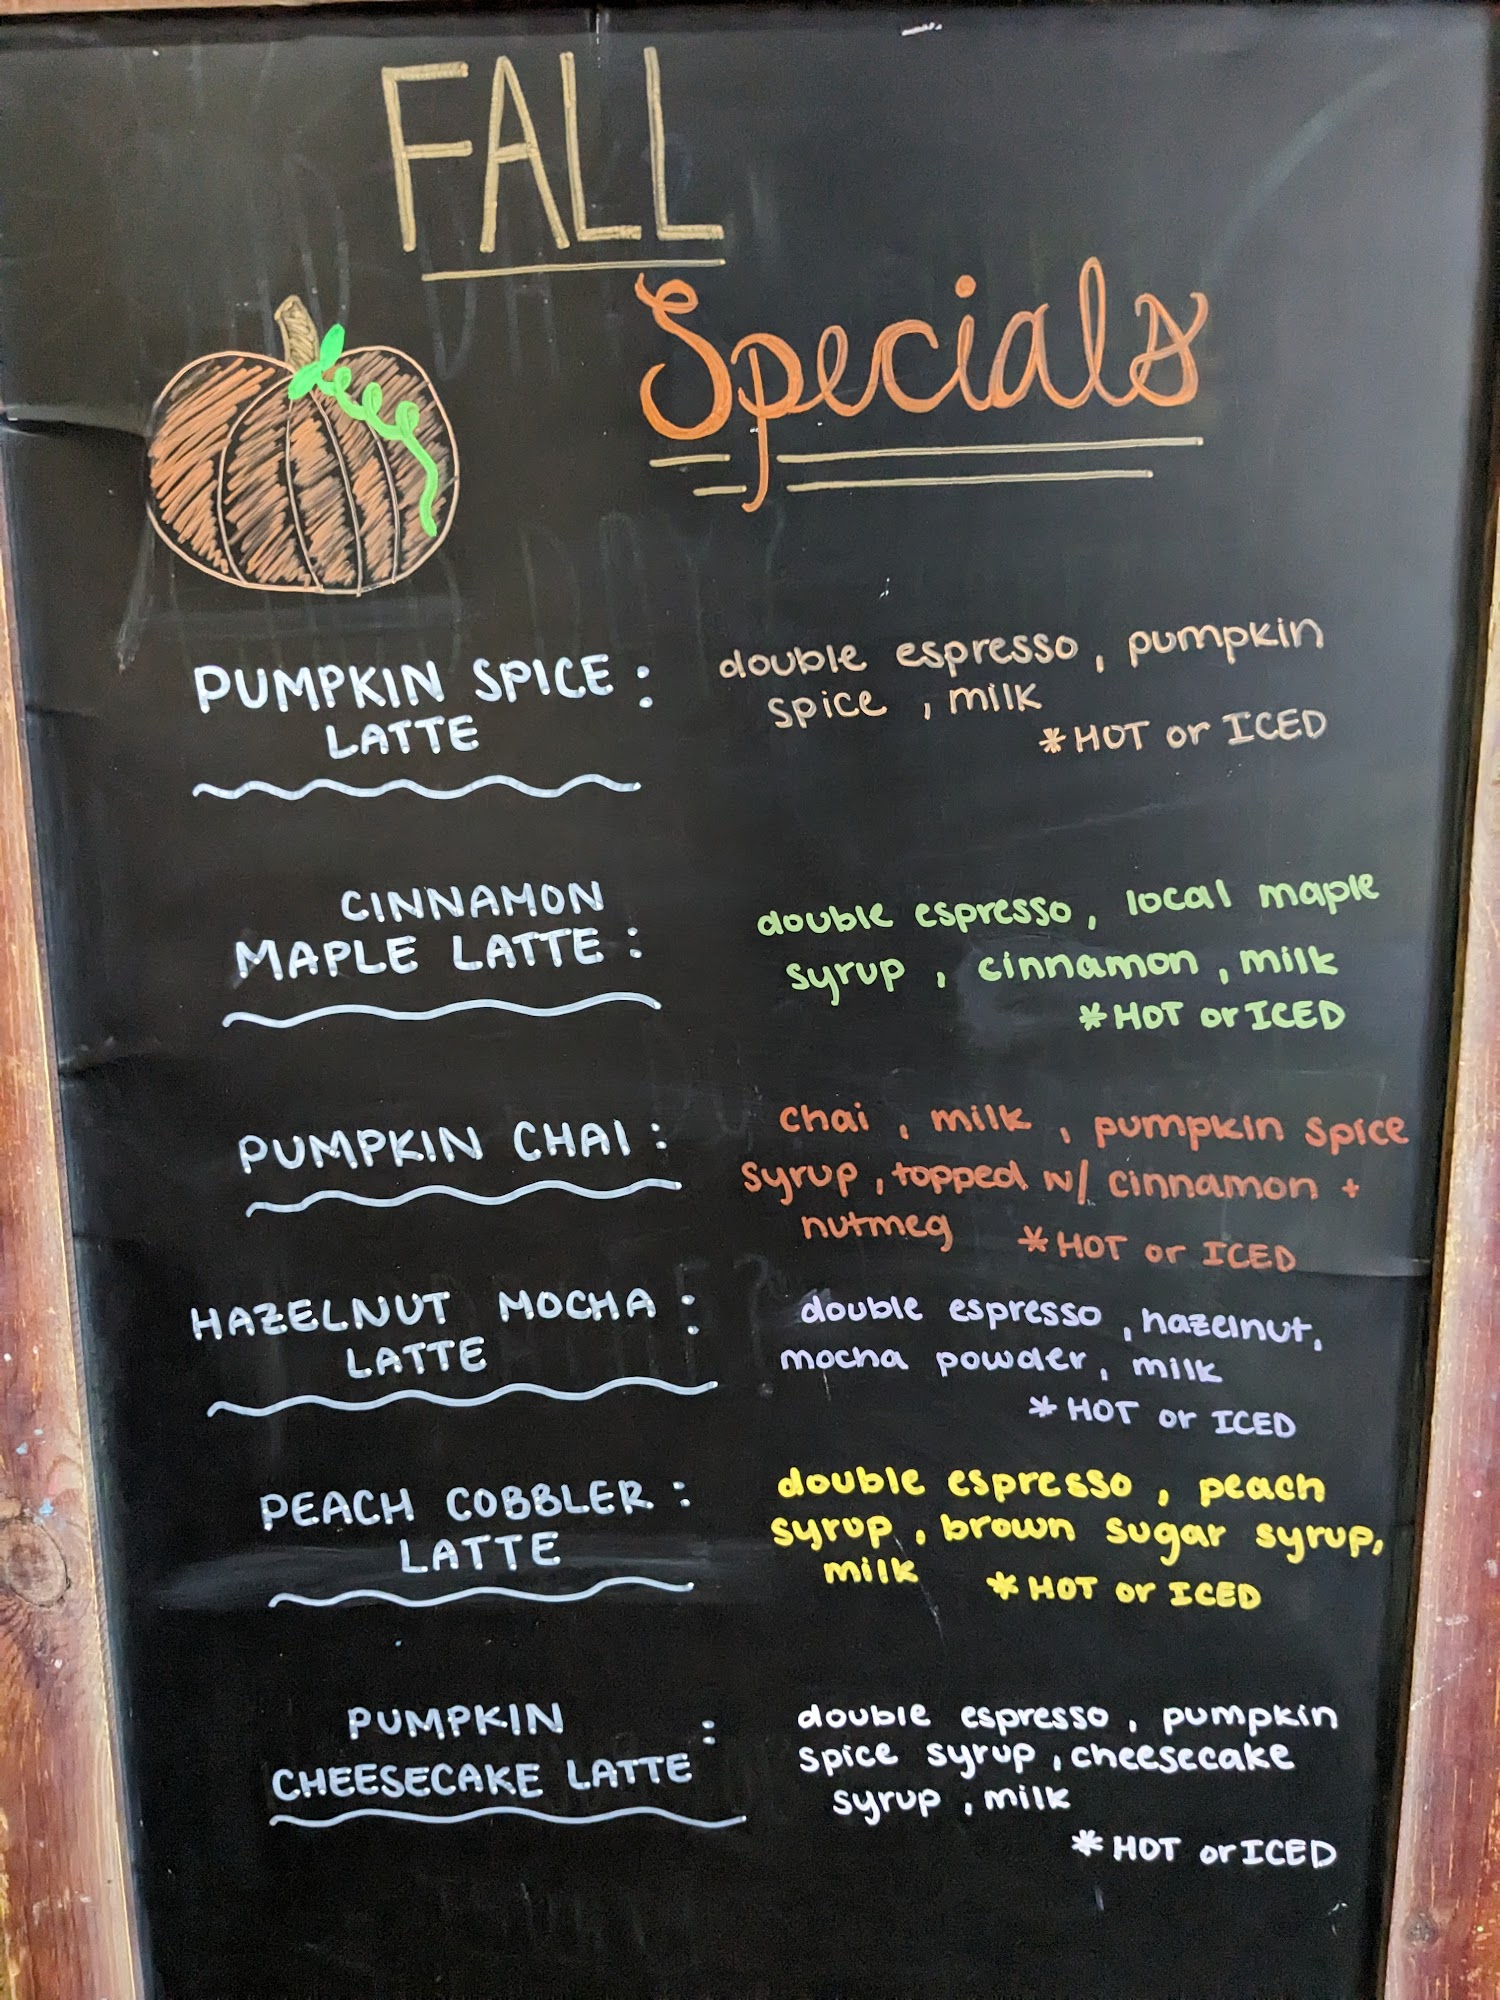 FALL
Specials
PUMPKIN SPICE :
LATTE
double espresso, pumpkin
spice, milk
*HOT or ICED
CINNAMON
MAPLE LATTE :
double espresso, local maple
syrup, cinnamon, milk
*HOT or ICED
PUMPKIN CHAI :
chai, milk, pumpkin spice
syrup, topped w/ cinnamon +
nutmeg *HOT or ICED
HAZELNUT MOCHA :
LATTE
double espresso, hazelnut,
mocha powder, milk
*HOT or ICED
PEACH COBBLER :
LATTE
double espresso, peach
syrup, brown sugar syrup,
milk *HOT or ICED
PUMPKIN
CHEESECAKE LATTE :
double espresso, pumpkin
spice syrup, cheesecake
syrup, milk
*HOT or ICED